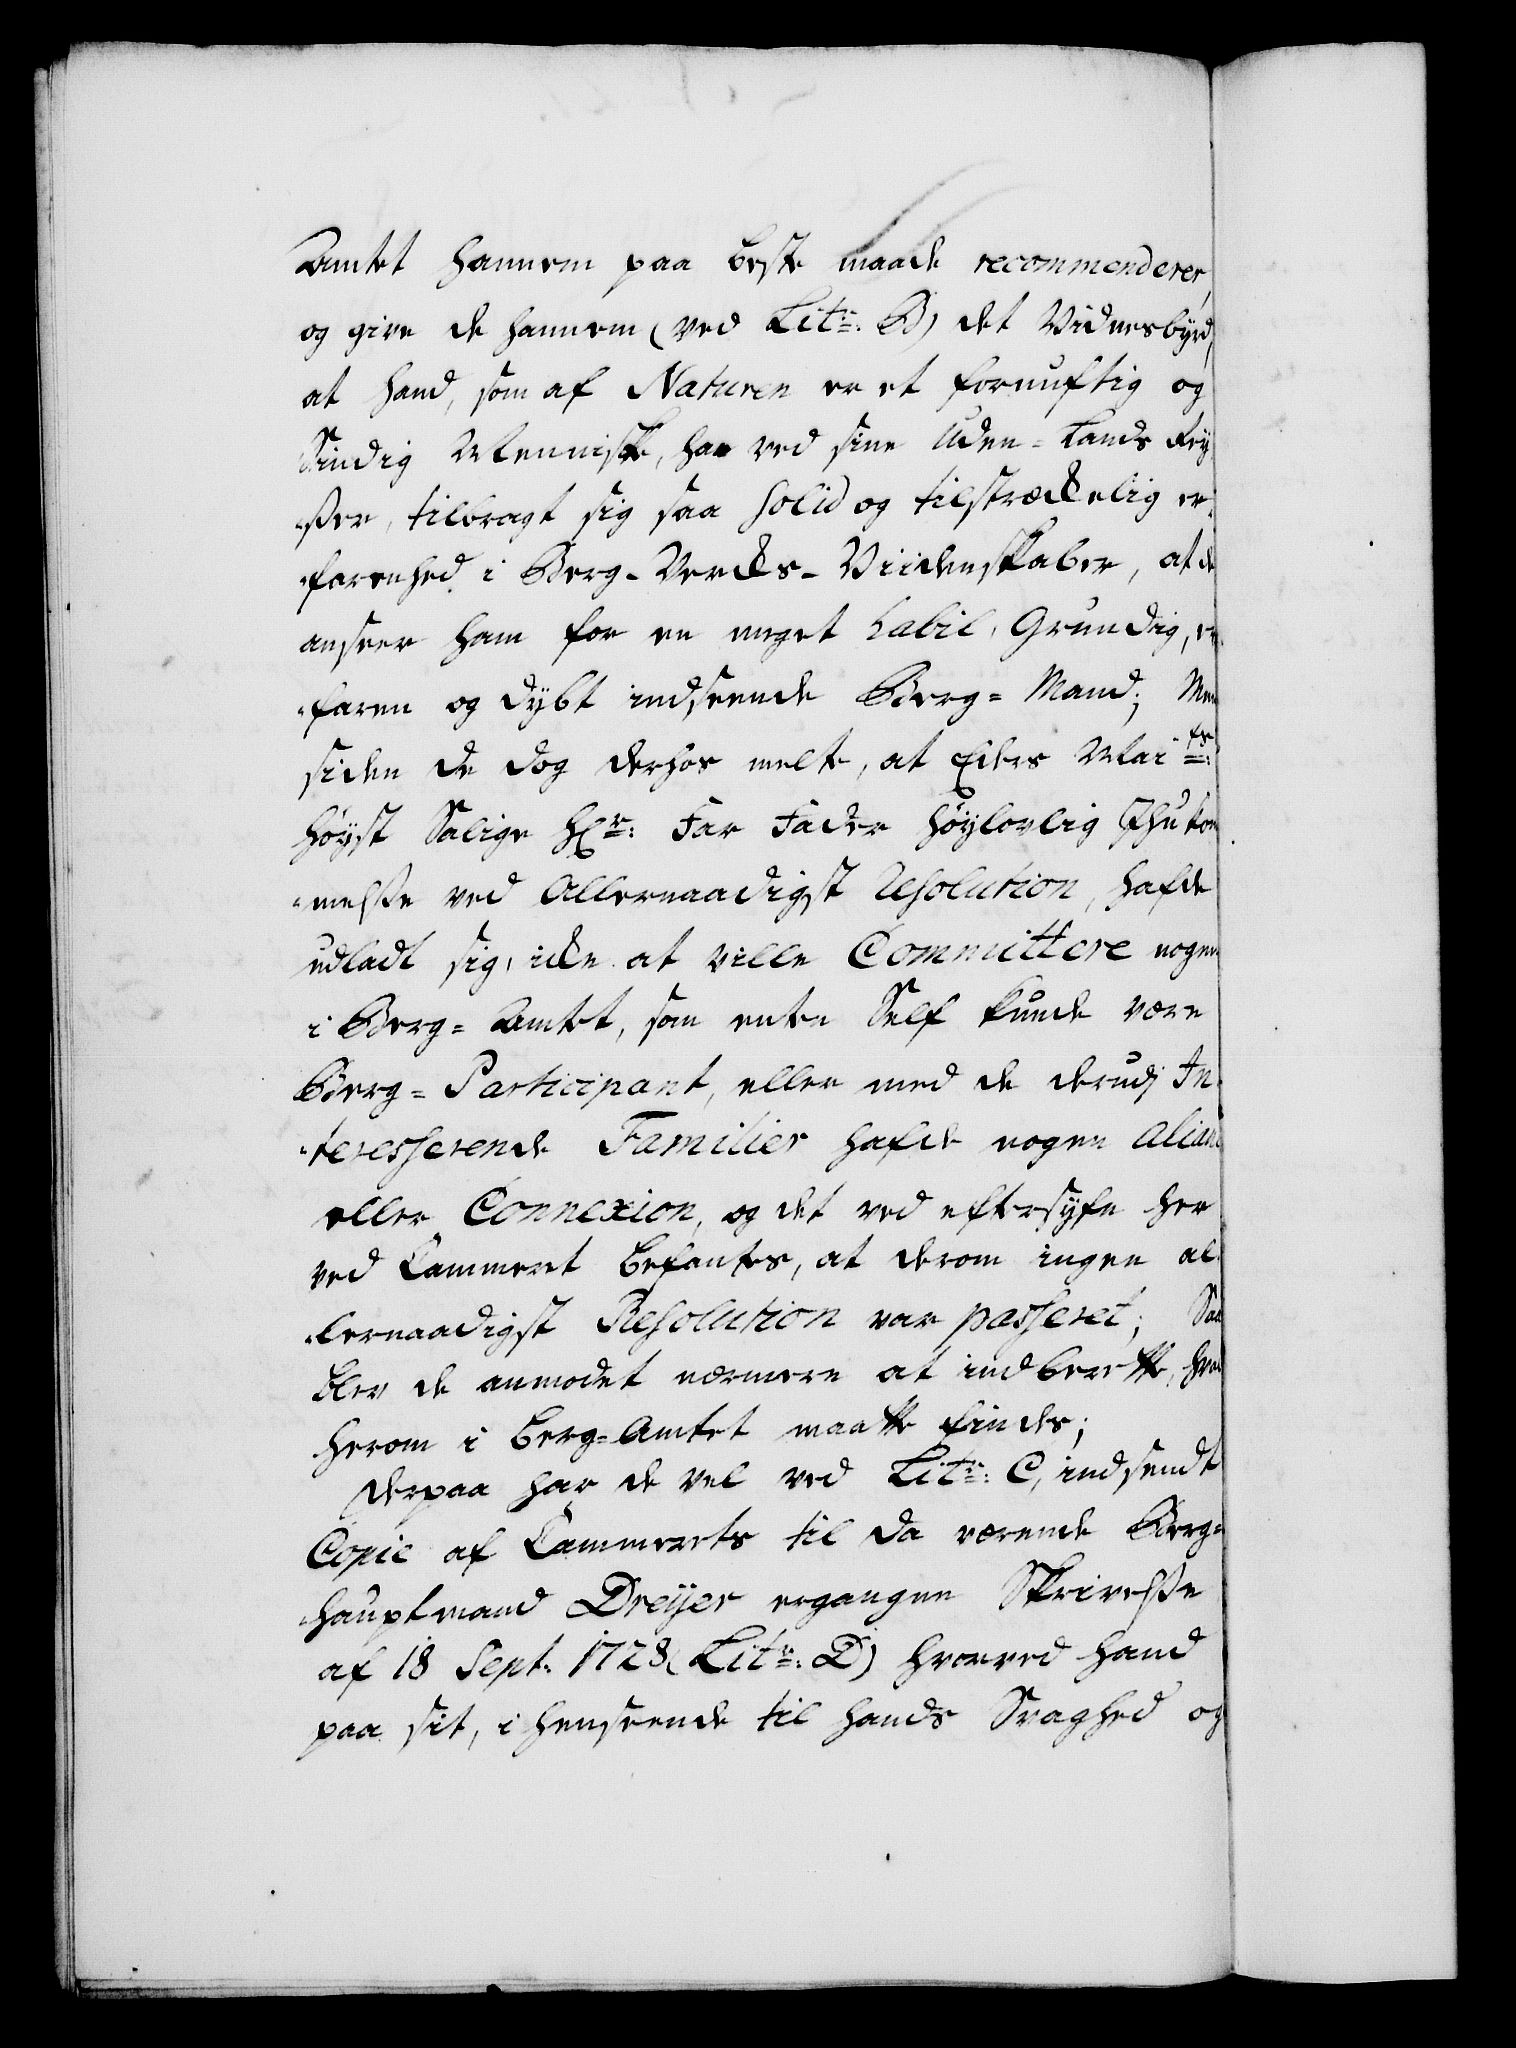 Amtet hannem paa beste maade recommenderer,
og give de hannem (ved Litr: B) det Vidnesbyrd,
at hand, som af Naturen er et fornuftig og
Sindig Menniske, har ved sine Uden-Lands Rey
-ser, tilbragt sig saa solid og tilstrækkelig er-
-farenhed i Berg-Verks-Viidenskaber, at de
anseer ham for en meget habil, Grundig, er-
-faren og dybt indseende Berg=Mand; Men
siden de dog derhos melte, at Eders Maits:
høyst Salige Hr: Far Fader høylovlig Ihukom
-melse ved Allernaadigst Resolution, hafde
udladt sig, icke at ville Committere nogen
i Berg=Amtet, som enten Self kunde være
Berg=Participant, eller med de derudj In-
-teresserende Familier hafde nogen Alianc
eller Connexion, og det ved eftersyn her
ved Cammeret befantes, at derom ingen al-
-lernaadigst Resolution var passeret; Saa
blev de anmodet nærmere at indberette, hvad
herom i Berg=Amtet maatte findes;
Derpaa har de vel ved Litr: C, indsendt
Copie af Cammerets til da værende Berg=
-hauptmand Dreyer ergangne Skrivelse
af 18 Sept: 1728 (Litr: D) hvorved hand
paa sit, i henseende til hands Svaghed og